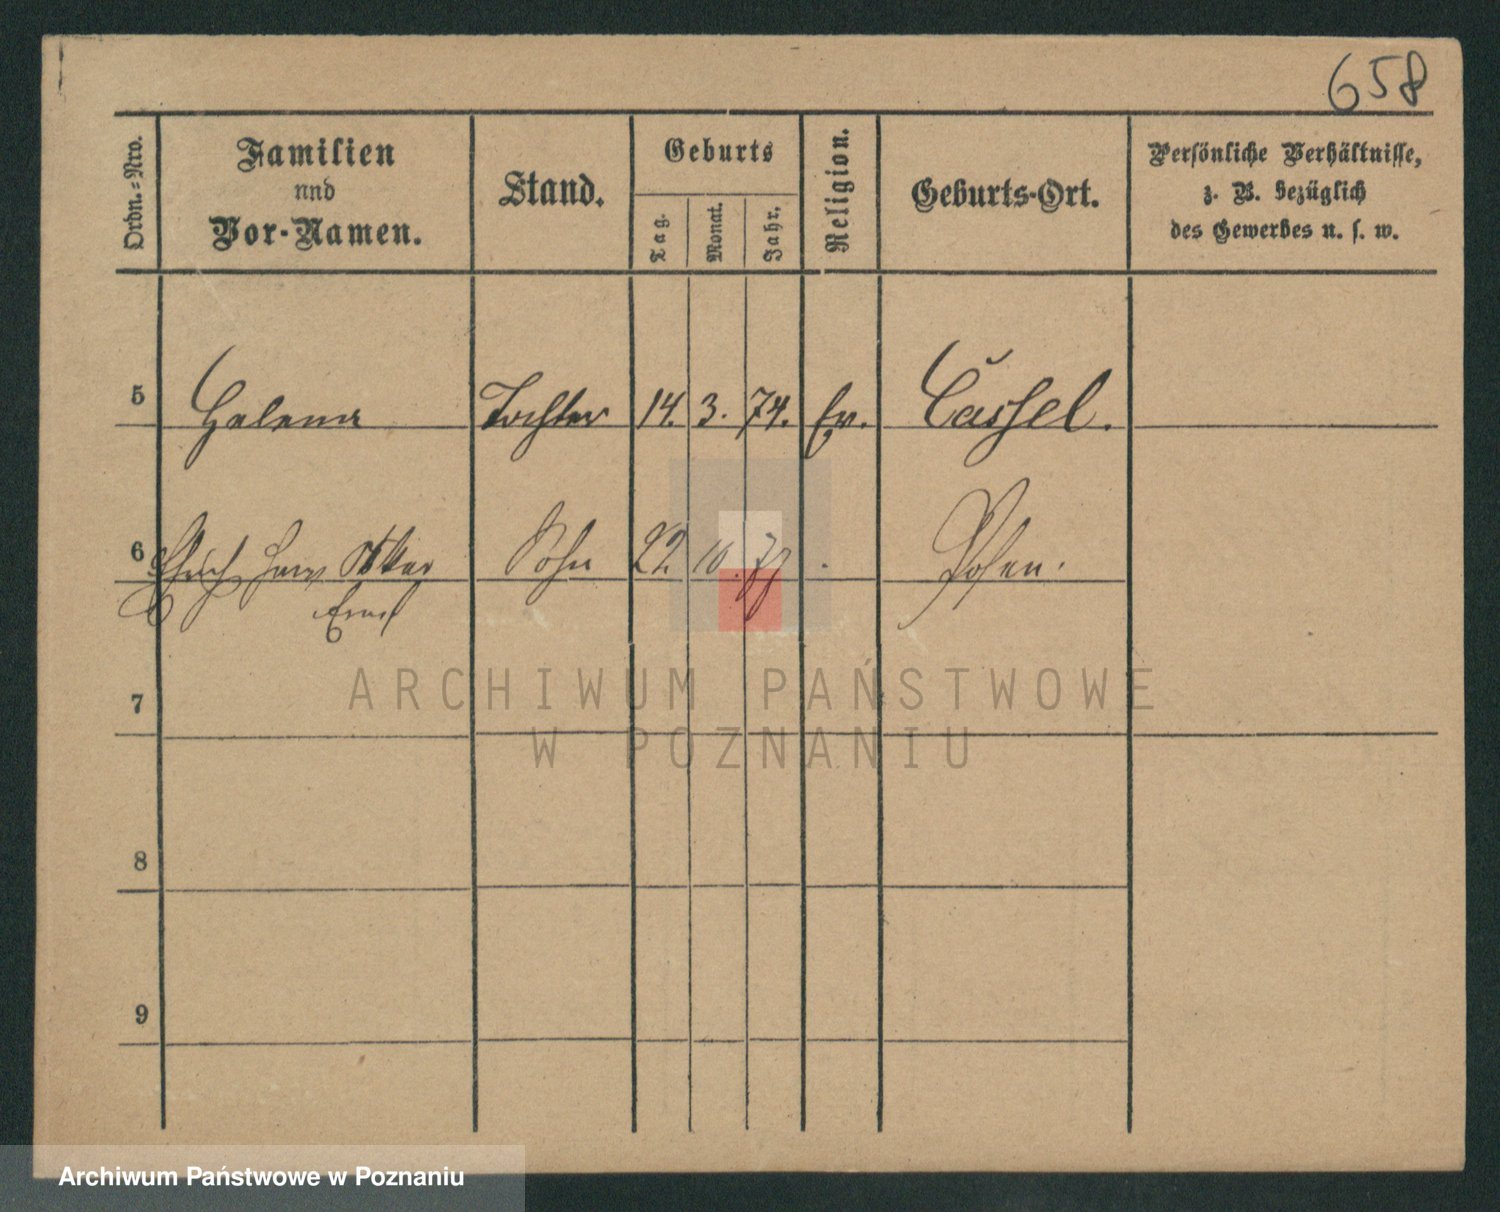 658
Ordn.=Nro.
Familien
und
Vor-Namen.
Stand.
Geburts
Tag.
Monat.
Jahr.
Religion.
Geburts-Ort.
Persönliche Verhältnisse,
z. B. bezüglich
des Gewerbes u. s. w.
5 Helena Tochter 14. 3. 74. Ev. Cassel.
6 Oskar Sohn 22 10. Posen.
Ernst
7
8
9
ARCHIWUM PAŃSTWOWE
W POZNANIU
Archiwum Państwowe w Poznaniu